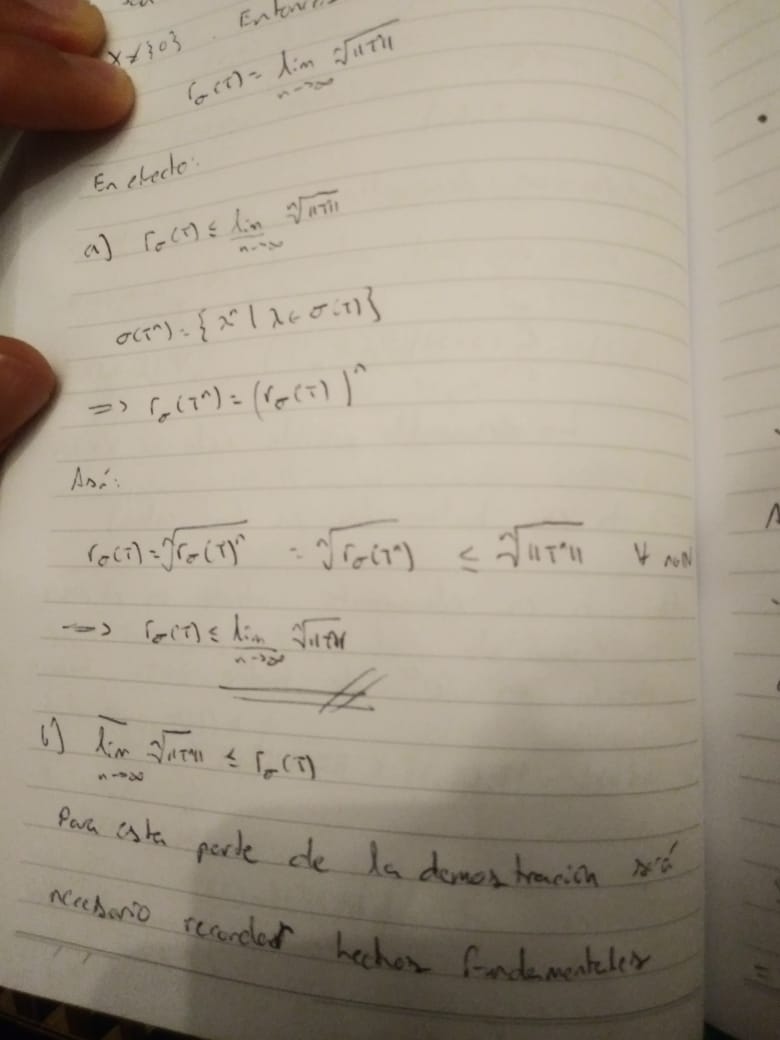 X ≠ {0}. Entonces
r_σ(T) = lim_{n→∞} ⁿ√‖Tⁿ‖
En efecto:
a) r_σ(T) ≤ \underline{lim}_{n→∞} ⁿ√‖Tⁿ‖
σ(Tⁿ) = { λⁿ | λ ∈ σ(T) }
=> r_σ(Tⁿ) = (r_σ(T))ⁿ
Así:
r_σ(T) = ⁿ√r_σ(T)ⁿ = ⁿ√r_σ(Tⁿ) ≤ ⁿ√‖Tⁿ‖ ∀ n∈N
=> r_σ(T) ≤ \underline{lim}_{n→∞} ⁿ√‖Tⁿ‖
b) \overline{lim}_{n→∞} ⁿ√‖Tⁿ‖ ≤ r_σ(T)
Para esta parte de la demostración será
necesario recordar hechos fundamentales